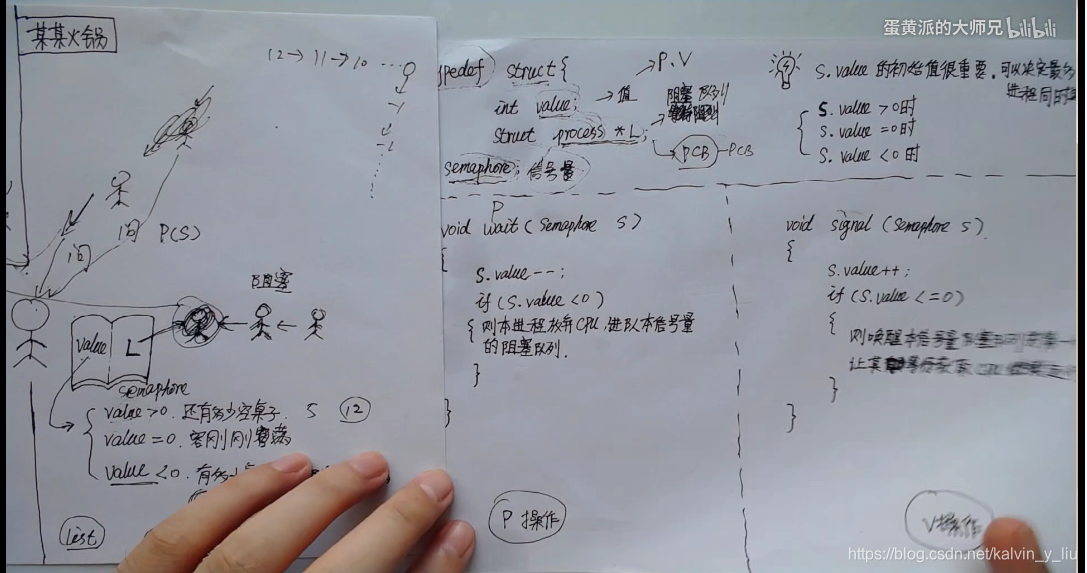 某某火锅
12→11→10 ...
0
-1
-2
问 P(S)
问
阻塞
value L
semaphore
value>0. 还有多少空桌子. 5 12
value=0. 客刚刚满
value<0. 有多少
list
蛋黄派的大师兄 bilibili
pedef struct{
int value; →值
struct process *L;
semaphore; 信号量
P、V
阻塞队列
PCB-PCB
S.value 的初始值很重要,可以决定最多
进程同时
S.value >0时
S.value =0时
S.value <0时
P
void wait(Semaphore S)
{
S.value--;
if(S.value<0)
{ 则本进程放弃CPU,进队本信号量
的阻塞队列.
}
}
P 操作
void signal(Semaphore S).
{
S.value++;
if(S.value<=0)
{
则唤醒本信号量
让某
}
}
V操作
https://blog.csdn.net/kalvin_y_liu